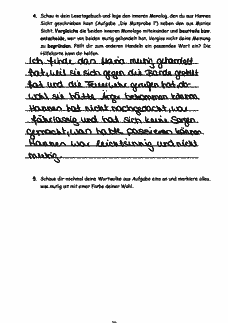 4. Schau in dein Lesetagebuch und lege den inneren Monolog, den du aus Hannes
Sicht geschrieben hast (Aufgabe „Die Mutprobe I“) neben den aus Marias
Sicht. Vergleiche die beiden inneren Monologe miteinander und beurteile bzw.
entscheide, wer von beiden mutig gehandelt hat. Vergiss nicht deine Meinung
zu begründen. Fällt dir zum anderen Handeln ein passendes Wort ein? Die
Hilfekarte kann dir helfen.
Ich finde, das Maria mutig gehandelt
hat, weil sie sich gegen die Bande gestellt
hat und die Feuerwehr gerufen hat, ob-
wohl sie hätte Ärger bekommen können.
Hannes hat nicht nachgedacht, war
fahrlässig und hat sich keine Sorgen
gemacht, was hätte passieren können.
Hannes war leichtsinnig und nicht
mutig.
5. Schaue dir nochmal deine Wortwolke aus Aufgabe eins an und markiere alles,
was mutig ist mit einer Farbe deiner Wahl.